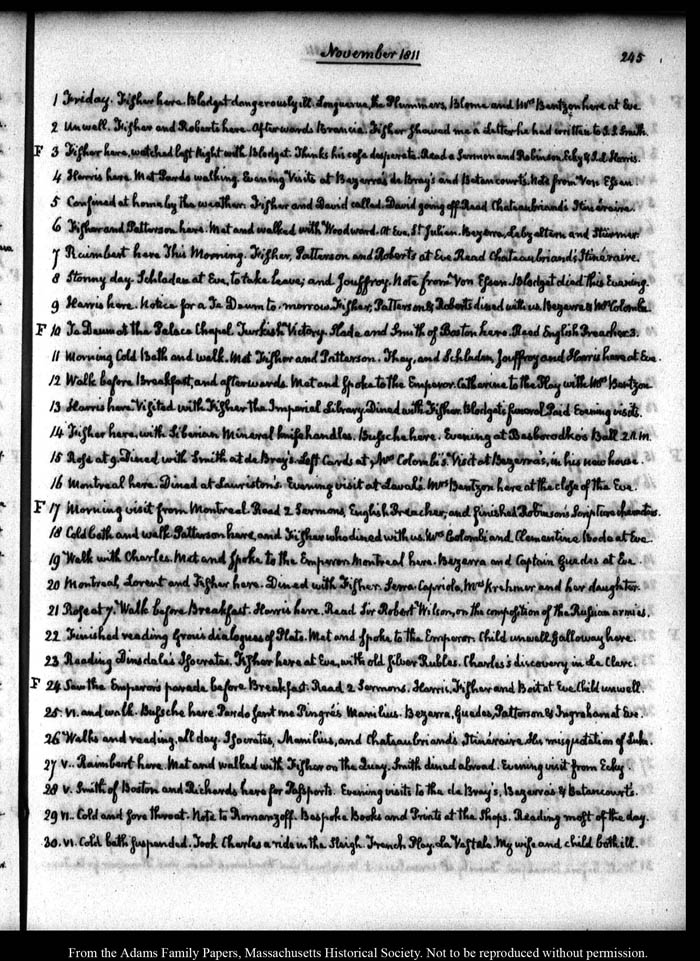 November 1811
245
1 Friday. Fisher here. Blodget dangerously ill. Longuerue, the Plummers, Blome and Mrs. Bentzon here at Eve
2 Unwell. Fisher and Roberts here. Afterwards Brancia. Fisher shewed me a Letter he had written to S. Smith.
F 3 Fisher here, watched last Night with Blodget. Thinks his case desperate. Read a Sermon and Robinson, Ecky & J. L. Harris.
4 Harris here. Met Pardo walking. Evening Visits at Bezerra's de Bray's and Betancourt's. Note from Von Essen
5 Confined at home by the weather. Fisher and David called. David going off. Read Chateaubriand's Itinéraire.
6 Fisher and Patterson here. Met and walked with Woodward. At Eve, St Julien. Bezerra, and Sturmer.
7 Raimbert here This Morning. Fisher, Patterson and Roberts at Eve. Read Chateaubriand's Itinéraire.
8 Stormy day. Schladen at Eve, to take leave; and Jouffroy. Note from Von Essen. Blodget died this Evening.
9 Harris here. Notice for a Te Deum to-morrow. Fisher, Patterson & Roberts dined with us. Bezerra & Mrs Colombi
F 10 Te Deum at the Palace Chapel. Turkish Victory. Slade and Smith of Boston here. Read English Preacher 3.
11 Morning Cold Bath and walk. Met Fisher and Patterson. Thay, and Schladen, Jouffroy and Harris here at Eve.
12 Walk before Breakfast; and afterwards. Met and spoke to the Emperor. Catharine to the Play with Mrs Bentzon
13 Harris here. Visited with Fisher the Imperial Library. Dined with Fisher. Blodget's funeral. Paid Evening visits.
14 Fisher here, with Siberian Mineral knife handles. Bussche here. Evening at Besborodko's Ball 2 A.M.
15 Rose at 9. Dined with Smith at de Bray's. Left Cards at Mrs Colombi's. Visit at Bezerra's, in his new house.
16 Montreal here. Dined at Lauriston's. Evening visit at Laval's. Mrs Bentzon here at the close of the Eve.
F 17 Morning visit from Montreal. Read 2 Sermons, English Preacher, and finished Robinson's Scripture characters.
18 Cold bath and walk. Patterson here, and Fisher who dined with us. Mrs Colombi and Clementine Bode at Eve.
19 Walk with Charles. Met and spoke to the Emperor. Montreal here. Bezerra and Captain Guedes at Eve.
20 Montreal, Lorent and Fisher here. Dined with Fisher. Serra Capriola, Mrs Krehmer and her daughter.
21 Rose at 7. Walk before Breakfast. Harris here. Read Sir Robert Wilson, on the composition of the Russian armies.
22 Finished reading Grou's dialogues of Plato. Met and spoke to the Emperor. Child unwell. Galloway here.
23 Reading Dinsdale's Isocrates. Fisher here at Eve, with old Silver Rubles. Charles's discovery in de Clerc.
F 24 Saw the Emperor's parade before Breakfast. Read 2 Sermons. Harris, Fisher and Boit at Eve. Child unwell.
25 VI. and walk. Bussche here. Pardo sent me Pingré's Manilius. Bezerra, Guedes, Patterson & Ingraham at Eve.
26 Walks and reading, all day. Isocrates, Manilius, and Chateaubriand's Itinéraire. His misquotation of Luke.
27 V. Raimbert here. Met and walked with Fisher on the Quay. Smith dined abroad. Evening visit from Ecky.
28 V. Smith of Boston and Richards here for Passports. Evening visits to the de Bray's, Bezerra's & Betancourt's.
29 VI. Cold and sore throat. Note to Romanzoff. Bespoke Books and Prints at the Shops. Reading most of the day.
30. VI. Cold bath suspended. Took Charles a ride in the Sleigh. French Play. La Vestale. My wife and child both ill.
From the Adams Family Papers, Massachusetts Historical Society. Not to be reproduced without permission.